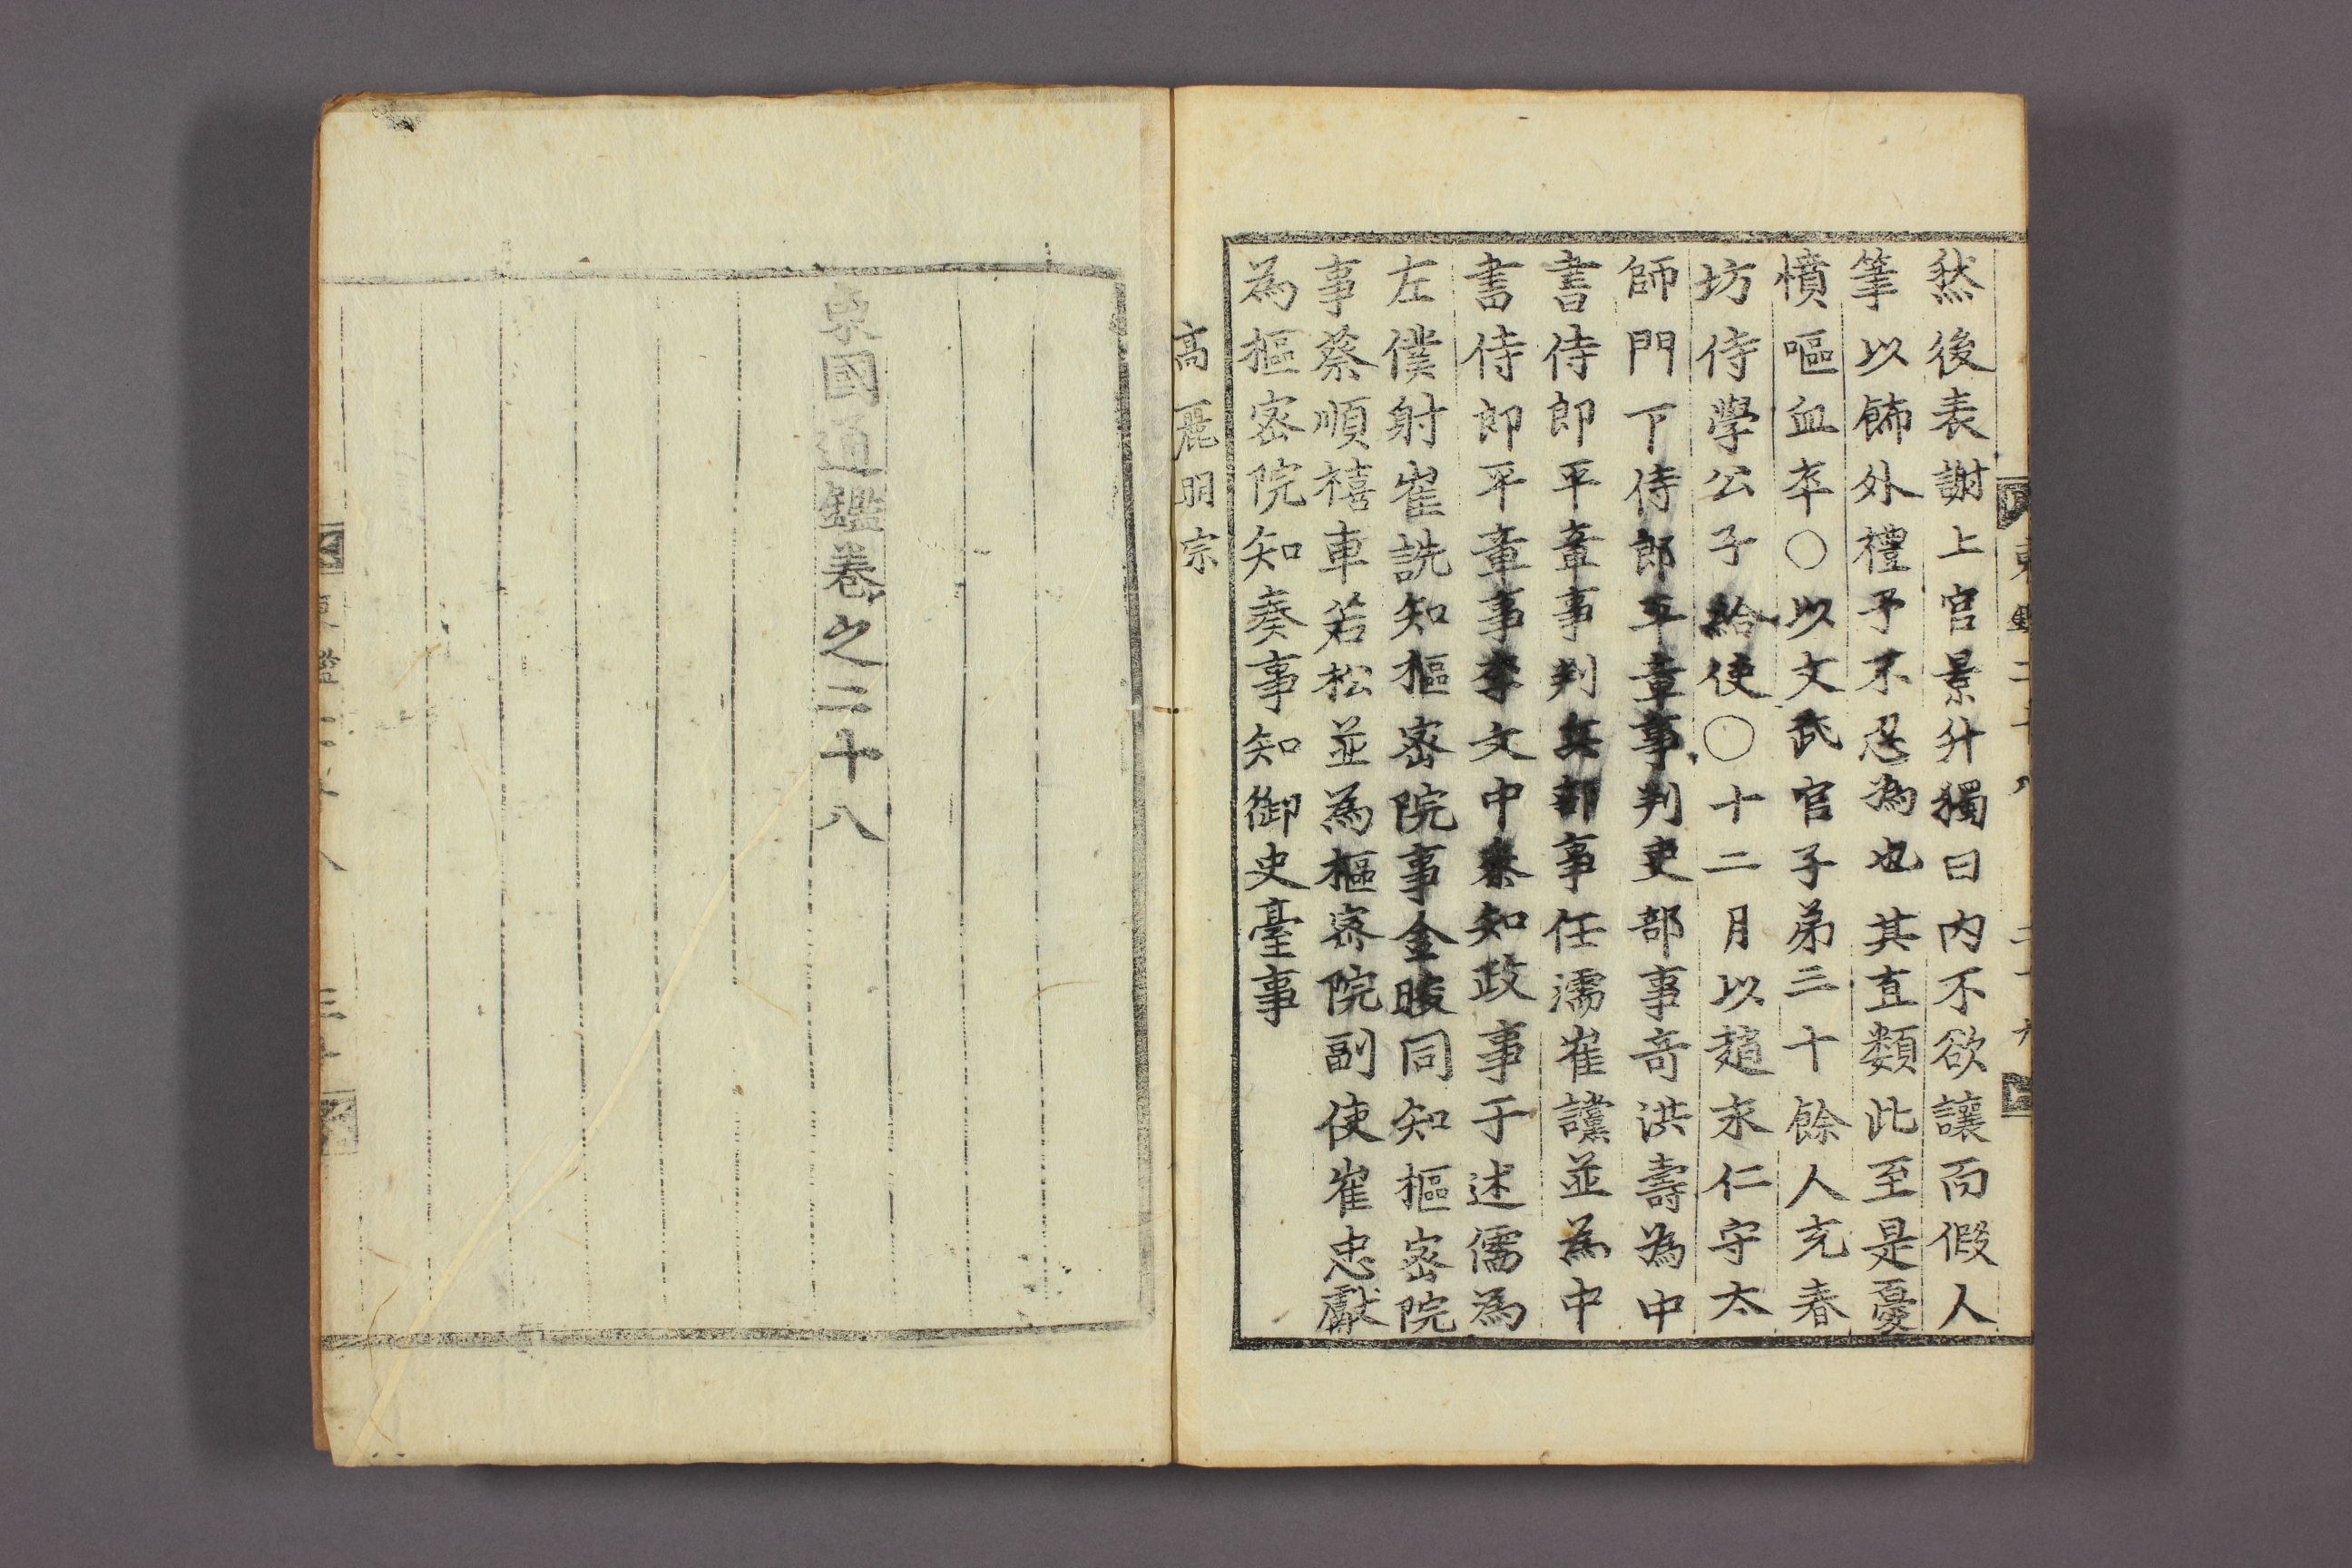 然後表謝上官景升獨曰內不欲讓而假人
筆以飾外禮予不忍為也其直類此至是憂
憤嘔血卒○以文武官子弟三十餘人充春
坊侍學公子給使○十二月以趙永仁守太
師門下侍郎平章事判吏部事奇洪壽為中
書侍郎平章事判兵部事任濡崔讜並為中
書侍郎平章事李文中叅知政事于述儒為
左僕射崔詵知樞密院事金晙同知樞密院
事蔡順禧車若松並為樞密院副使崔忠獻
為樞密院知奏事知御史臺事
高麗明宗
東國通鑑卷之二十八